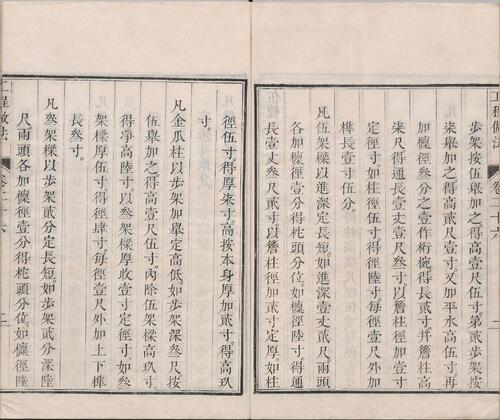 工程做法 卷二十六 一
步架按伍舉加之得高壹尺伍寸第貳步架按
柒舉加之得高貳尺壹寸又加平水高伍寸再
加檁徑叁分之壹作桁椀得長貳寸并簷柱高
柒尺得通長壹丈壹尺叁寸以簷柱徑加壹寸
定徑寸如柱徑伍寸得徑陸寸每徑壹尺外加
榫長壹寸伍分
凡伍架樑以進深定長短如進深壹丈貳尺兩頭
各加檁徑壹分得柁頭分位如檁徑陸寸得通
長壹丈叁尺貳寸以簷柱徑加貳寸定厚如柱
徑伍寸得厚柒寸高按本身厚加貳寸得高玖
寸
凡金瓜柱以步架加舉定高低如步架深叁尺按
伍舉加之得高壹尺伍寸內除伍架樑高玖寸
得凈高陸寸以叁架樑厚收壹寸定徑寸如叁
架樑厚伍寸得徑肆寸每徑壹尺外加上下榫
長叁寸
凡叁架樑以步架貳分定長短如步架貳分深陸
尺兩頭各加檁徑壹分得柁頭分位如檁徑陸
工程做法 卷二十六 二